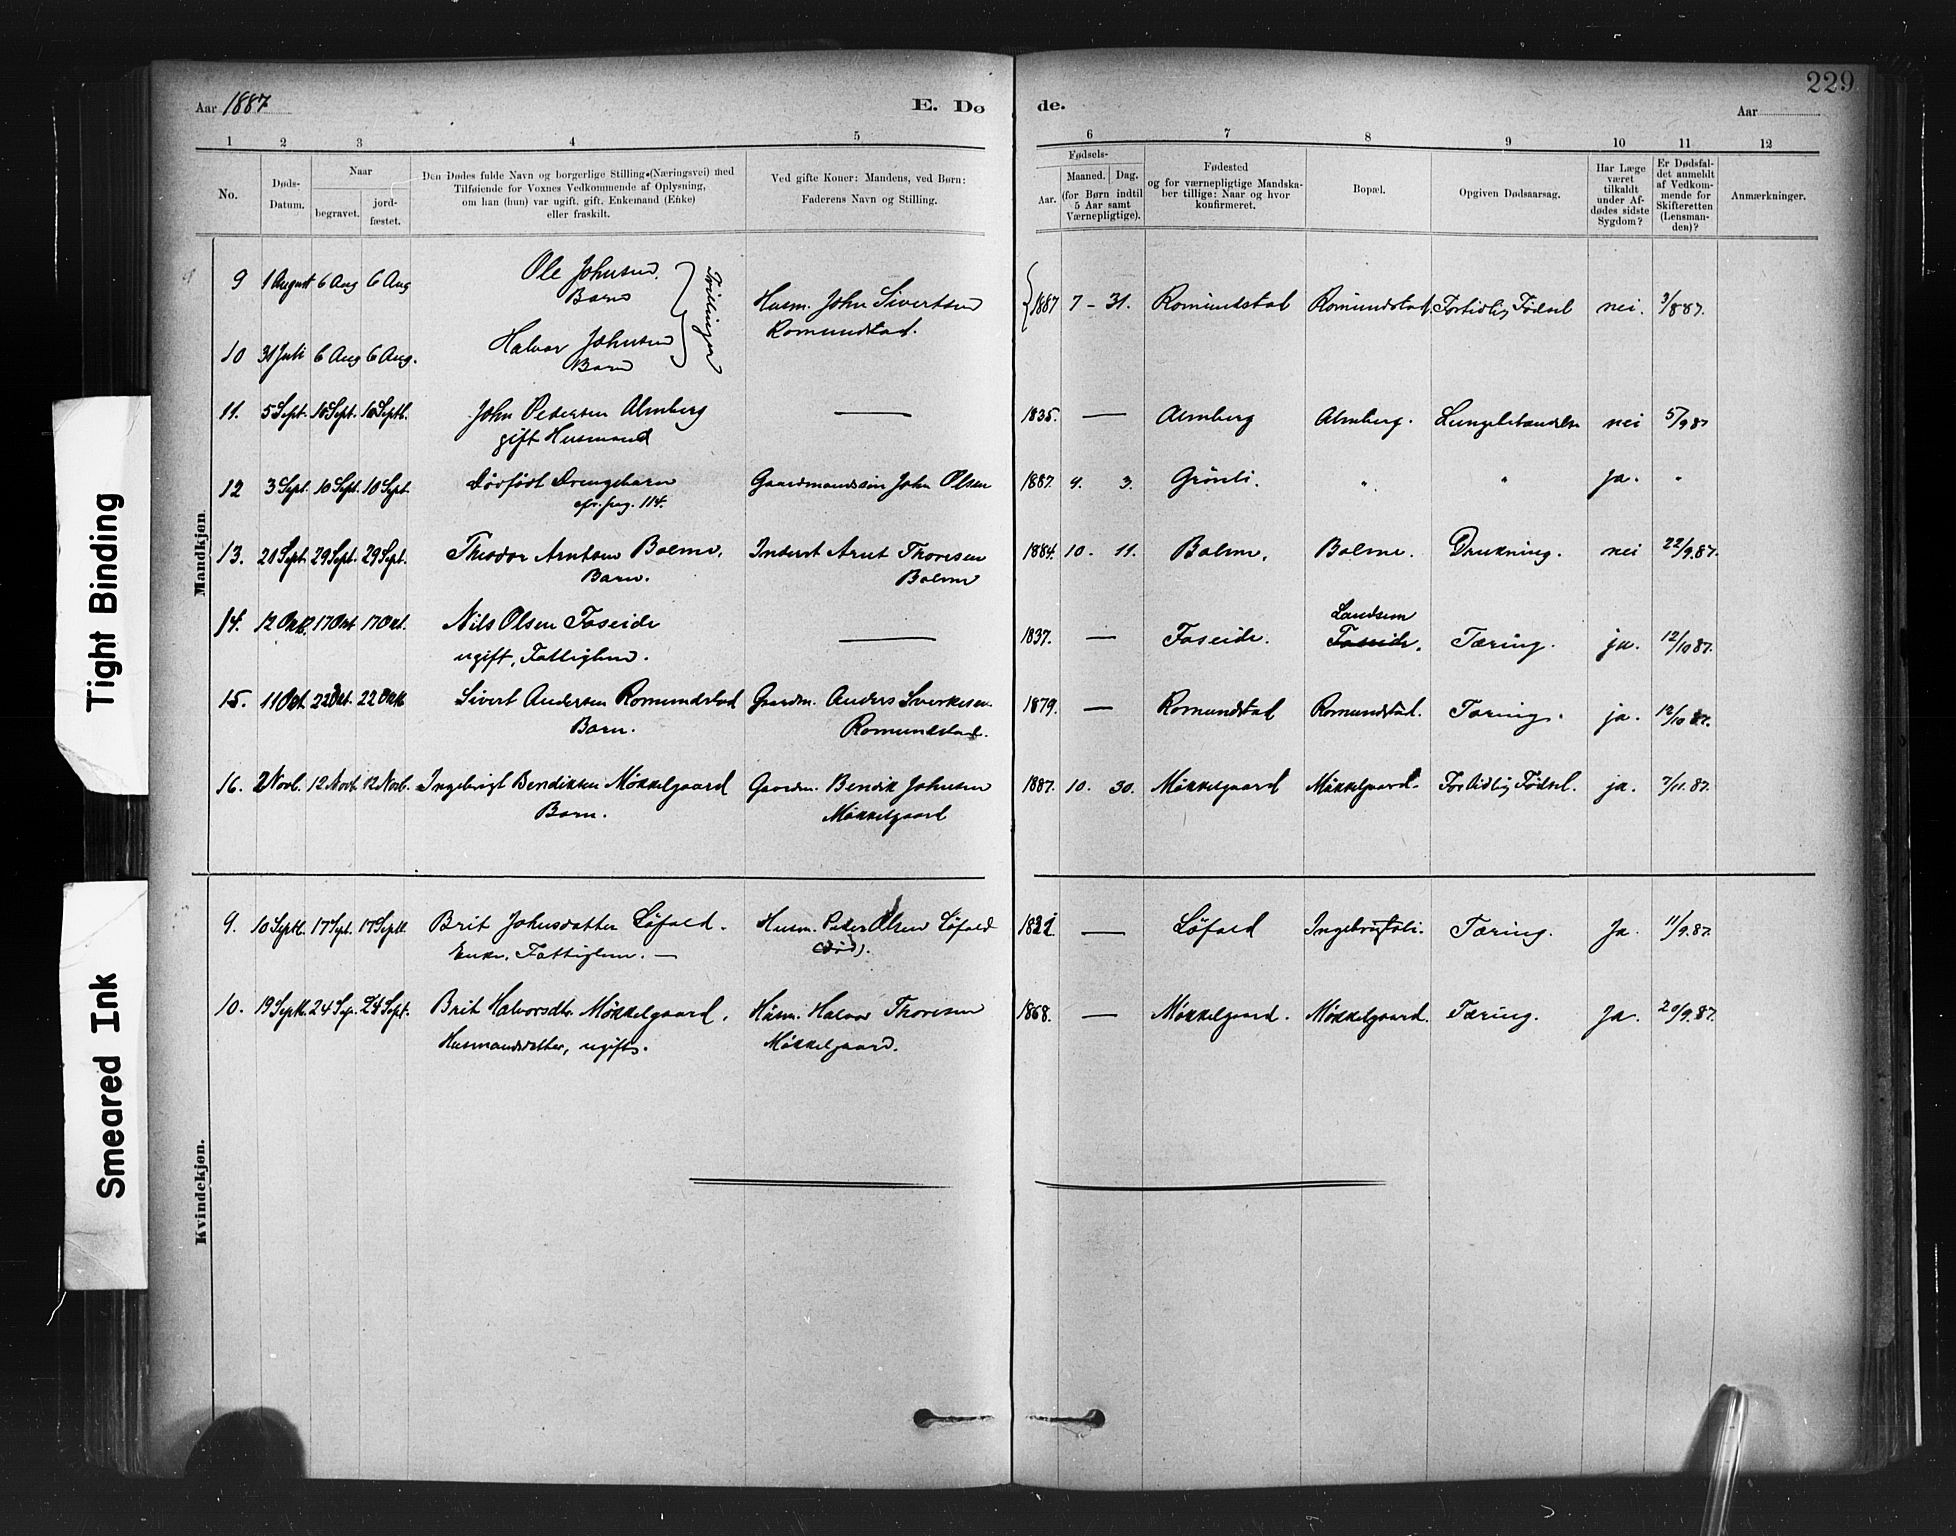 229
Aar 1887
E. Dø
de.
Aar
1 2 3 4 5 6 7 8 9 10 11 12
No.
Døds-
Datum.
Naar
begravet.
jord-
fæstet.
Den Dødes fulde Navn og borgerlige Stilling (Næringsvei) med
Tilføiende for Voxnes Vedkommende af Oplysning,
om han (hun) var ugift, gift, Enkemand (Enke)
eller fraskilt.
Ved gifte Koner: Mandens, ved Børn:
Faderens Navn og Stilling.
Fødsels-
Aar.
Maaned. Dag.
(for Børn indtil
5 Aar samt
Værnepligtige).
Fødested
og for værnepligtige Mandska-
ber tillige: Naar og hvor
konfirmeret.
Bopæl.
Opgiven Dødsaarsag.
Har Læge
været
tilkaldt
under Af-
dødes sidste
Sygdom?
Er Dødsfal-
det anmeldt
af Vedkom-
mende for
Skifteretten
(Lensman-
den)?
Anmærkninger.
Mandkjøn
9 1 August 6 Aug 6 Aug Ole Johnsen
Barn
Tvillinger
Husm. John Sivertsen
Romundstad.
1887 7 - 31. Romundstad Romundstad. Fortidlig Fødsel nei. 3/8 87.
10 31 Juli 6 Aug 6 Aug. Halvor Johnsen
Barn
11. 5 Sept. 10 Sept. 10 Septb. John Pedersen Almberg — 1835. — Almberg Almberg. Lungebetændelse nei 5/9 87
gift Husmand
12 3 Sept. 10 Sept. 10 Sept. Dødfødt Drengebarn Gaardmandssøn John Olsen 1887. 9. 3. Grønli. " " Ja. "
cfr. pag. 114.
13. 21 Sept. 29 Sept. 29 Sept. Theodor Arntsen Bolme. Inderst Arnt Thoresen 1884. 10. 11. Bolme. Bolme. Drukning. nei 22/9.87.
Barn. Bolme
14. 12 Okt. 17 Okt 17 Okt. Nils Olsen Foseide — 1837. — Foseide. Landsem
Foseide. Tæring. ja. 12/10 87.
ugift, Fattiglem.
15. 11 Okt. 22 Okt. 22 Okt Sivert Andersen Romundstad Gaardm. Anders Sverkesen 1879. — Romundstad Romundstad. Tæring. ja. 12/10 87.
Barn. Romundstad.
16. 2 Novb. 12 Novb. 12 Novb. Ingebrigt Bendiksen Møkkelgaard Gaardm. Bendik Johnsen 1887. 10. 30. Møkkelgaard Møkkelgaard. Fortidlig Fødsel. ja. 7/11.87.
Barn. Møkkelgaard
Kvindekjøn.
9. 10 Septb. 17 Sept. 17 Septb Brit Johnsdatter Løfald. Husm. Peder Olsen Løfald — Løfald Tæring. Ja. 11/9.87.
Enke, Fattiglem. — (død).
10. 19 Septb. 24 Sep. 24 Sept. Brit Halvorsdtr. Møkkelgaard. Husm. Halvor Thoresen 1868. — Møkkelgaard. Møkkelgaard. Tæring. Ja. 20/9.87.
Husmandsdatter, ugift. Møkkelgaard.
Tight Binding
Smeared Ink